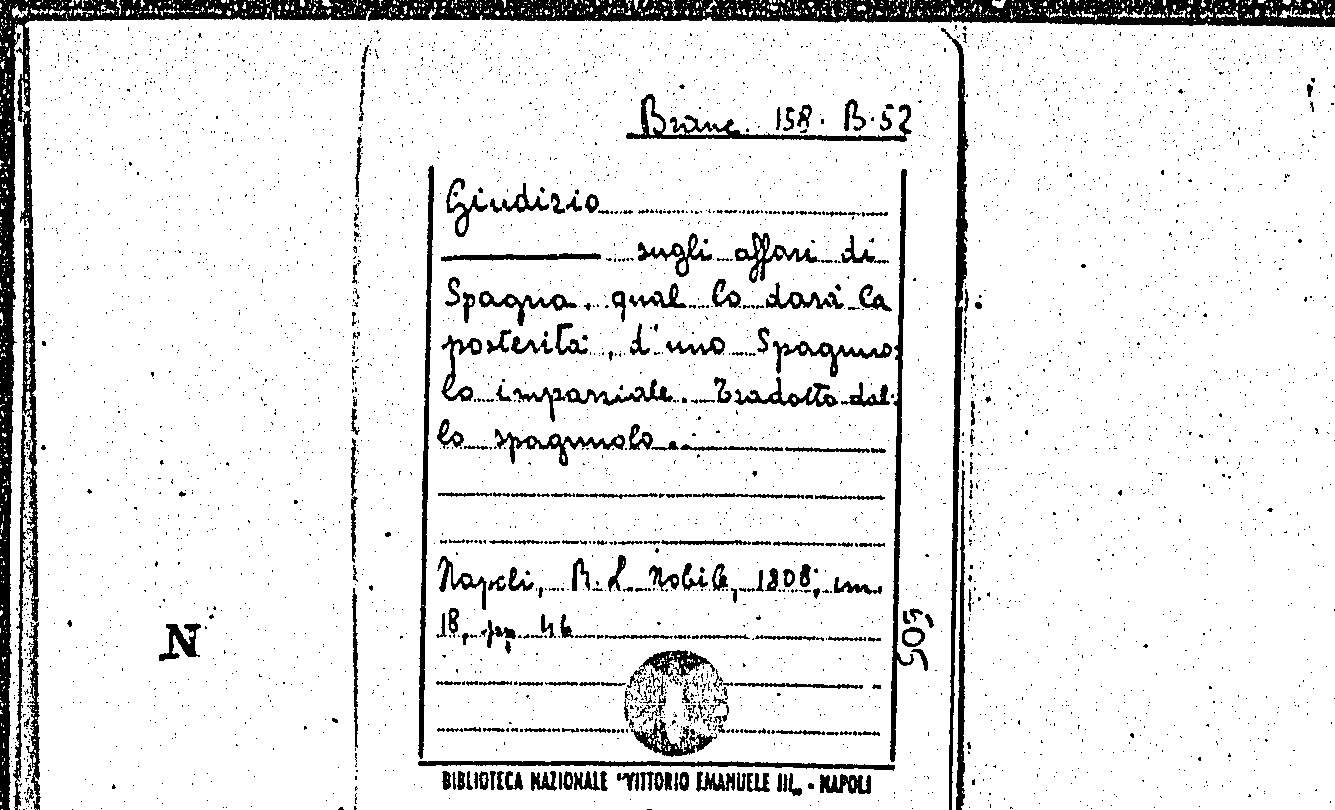 Branc. 158. B.52
Giudizio
sugli affari di
Spagna. qual lo darà la
posterità, d'uno Spagnuo:
lo imparziale. Tradotto dal:
lo spagnuolo..
Napoli, R. L. Nobile, 1808; cm.
18, pp. 46
505
N
BIBLIOTECA NAZIONALE "VITTORIO EMANUELE III„ - NAPOLI